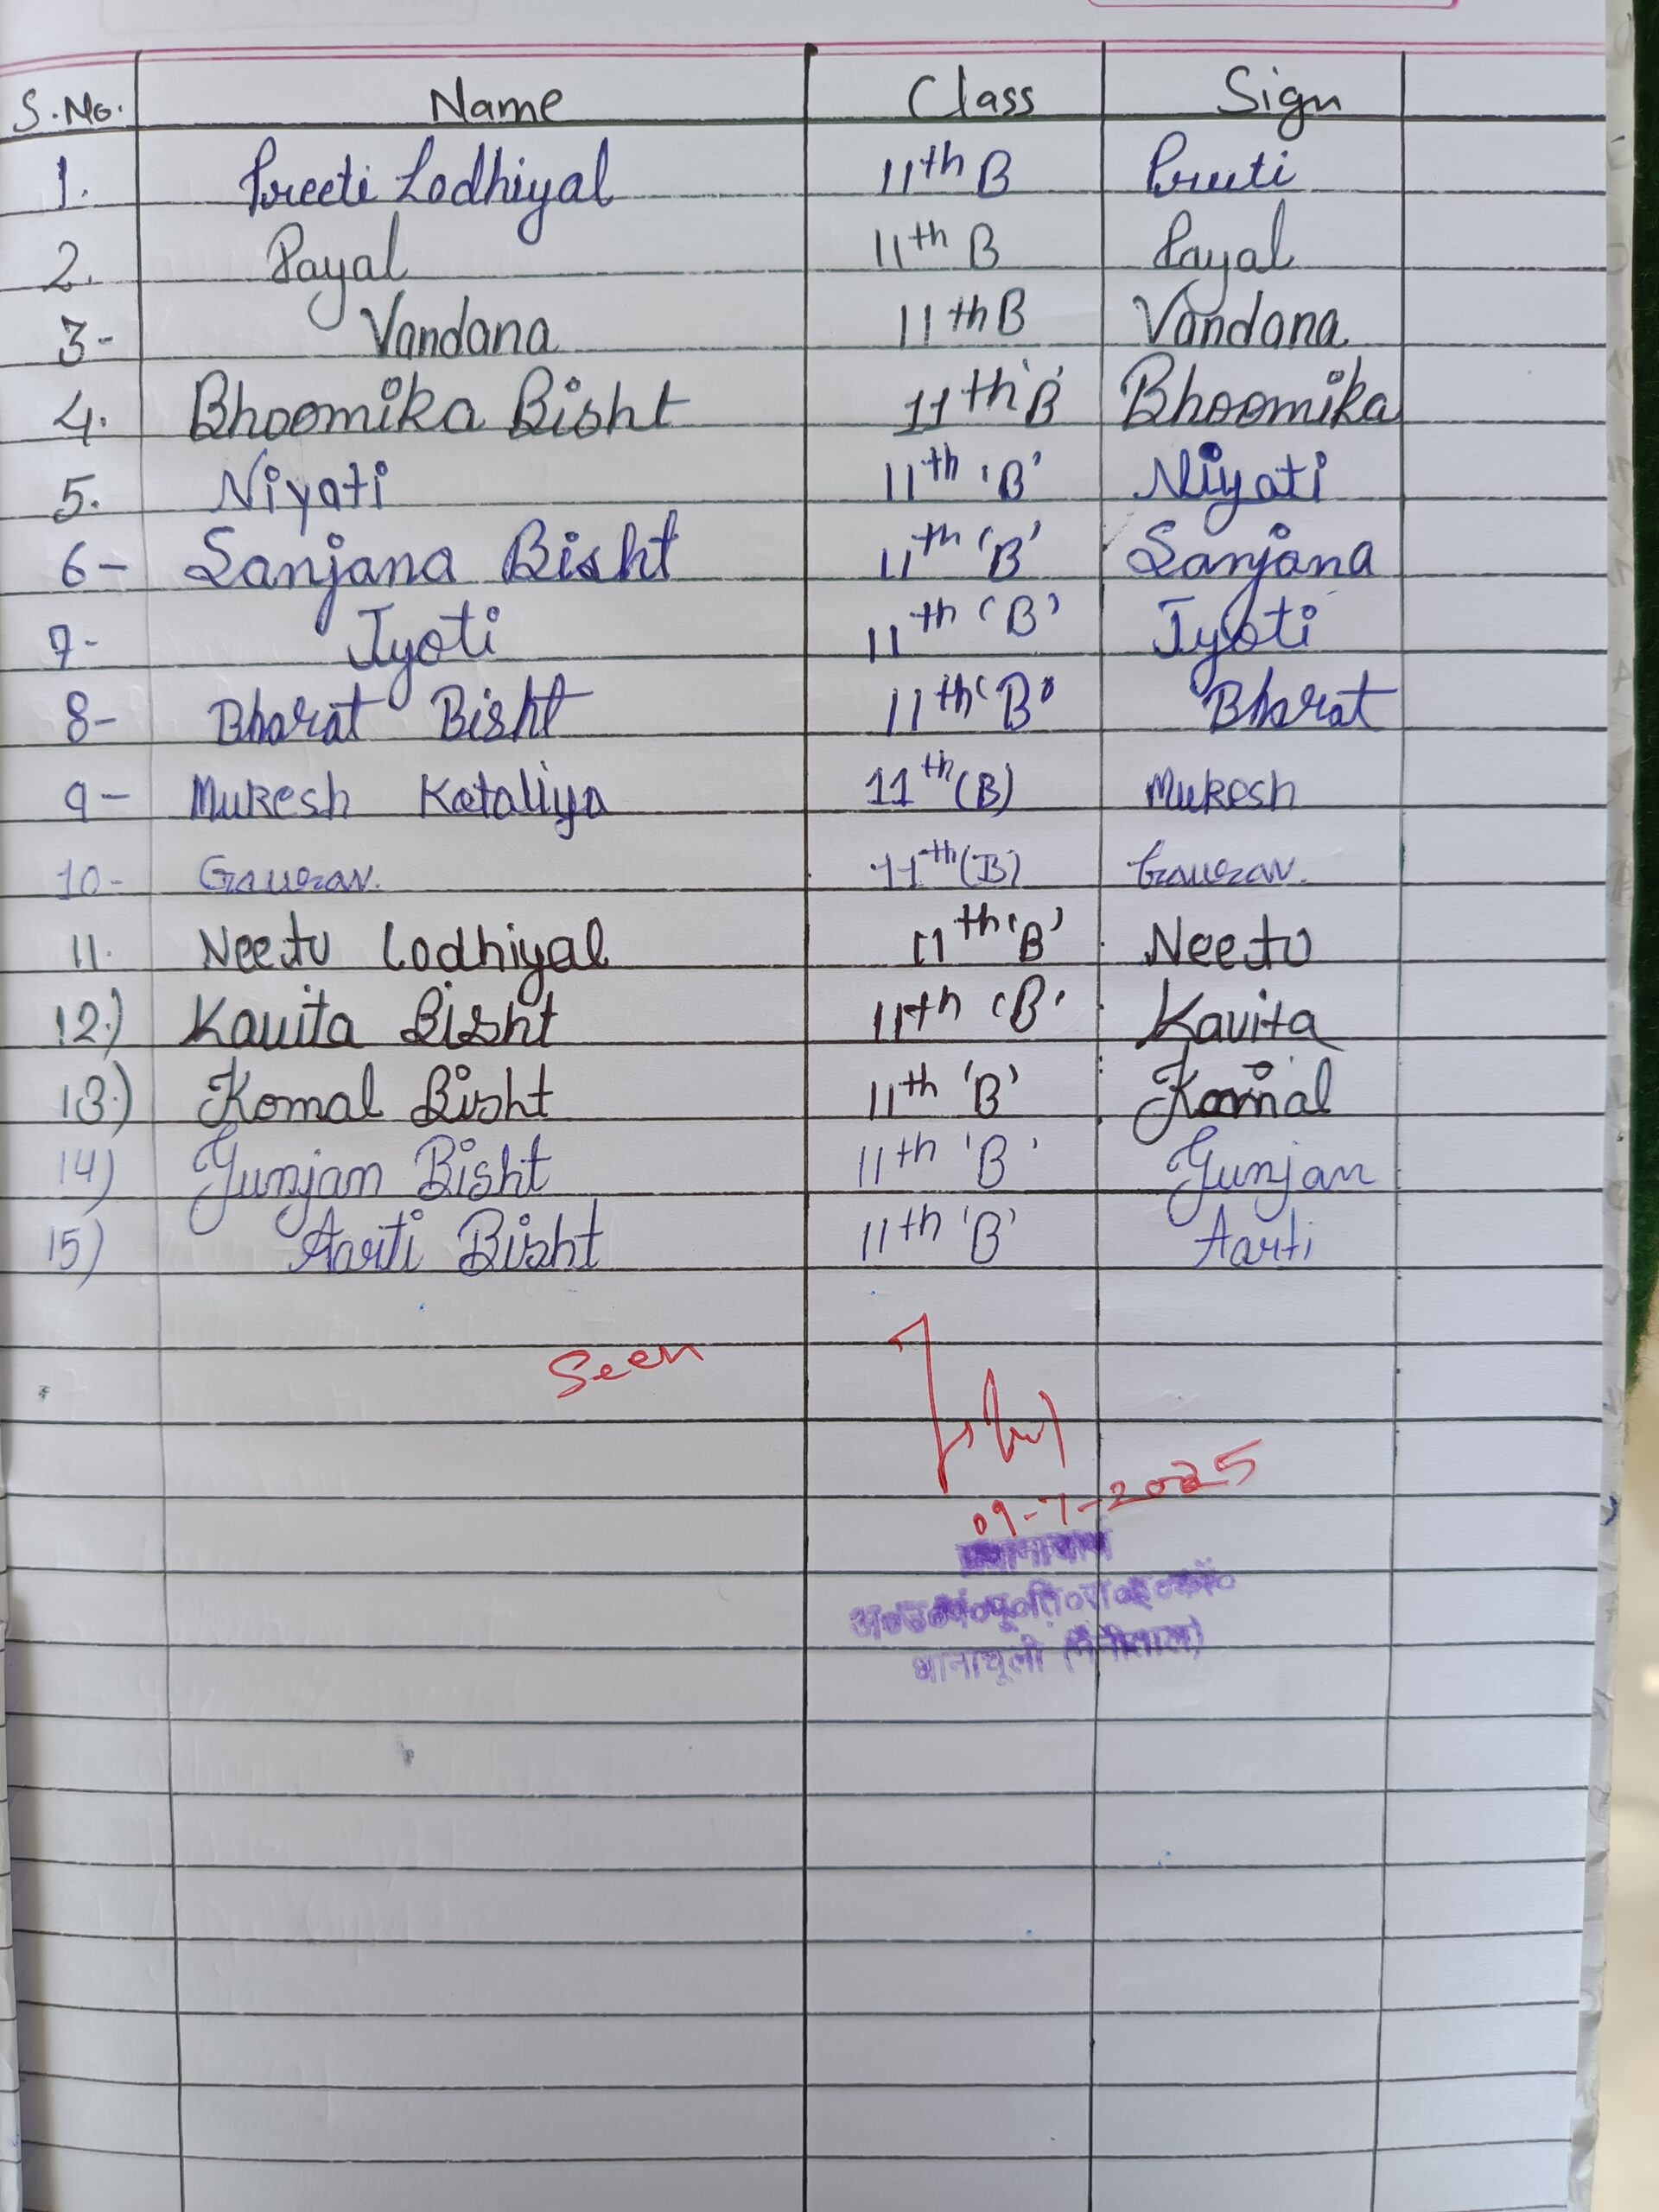 S.No. Name Class Sign
1. Preeti Lodhiyal 11th B Preeti
2. Payal 11th B Payal
3- Vandana 11th B Vandana
4. Bhoomika Bisht 11th 'B' Bhoomika
5. Niyati 11th 'B' Niyati
6- Sanjana Bisht 11th 'B' Sanjana
7- Jyoti 11th 'B' Jyoti
8- Bharat Bisht 11th 'B' Bharat
9- Mukesh Kataliya 11th (B) Mukesh
10- Gaurav. 11th (B) Gaurav.
11. Neetu Lodhiyal 11th 'B' Neetu
12.) Kavita Bisht 11th 'B' Kavita
13.) Komal Bisht 11th 'B' Komal
14) Gunjan Bisht 11th 'B' Gunjan
15) Aarti Bisht 11th 'B' Aarti
Seen
09-7-2025
प्रधानाचार्य
धानाचूली (नैनीताल)